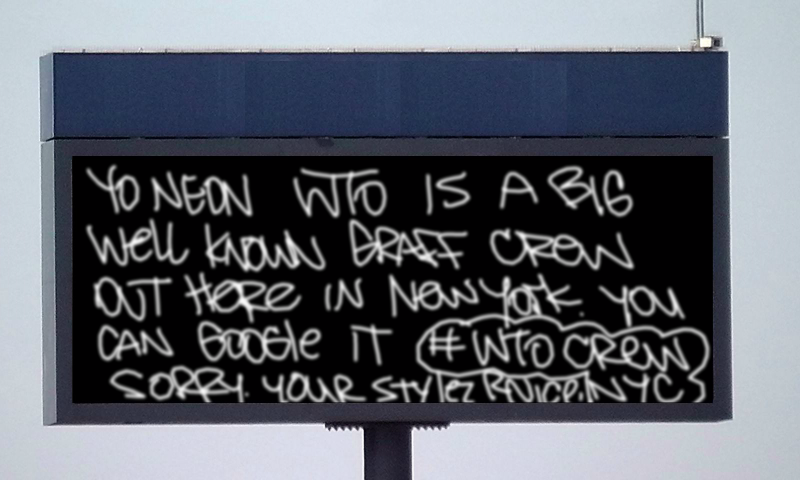 YO NEON WTO IS A BIG
Well KNOWN GRAFF CREW
OUT HERE IN NEW YORK. YOU
CAN GOOGle IT #WTO CREW
SORRY. YOUR STYlez R NICE. NYC